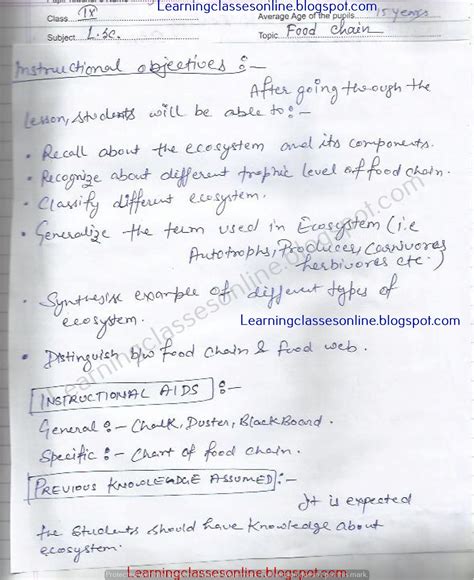 Learningclassesonline.blogspot.com
Class IX Average Age of the pupils 15 years
Subject L.Sc. Topic Food chain
Instructional objectives :-
After going through the
lesson, students will be able to :-
• Recall about the ecosystem and its components.
• Recognize about different trophic level of food chain.
• Classify different ecosystem.
• Generalize the term used in Ecosystem (i.e
Autotrophs, Producers, Carnivores
herbivores etc.)
• Synthesise example of different types of
ecosystem.
Learningclassesonline.blogspot.com
• Distinguish b/w food chain & food web.
Learningclassesonline.blogspot.com
INSTRUCTIONAL AIDS :-
General :- Chalk, Duster, BlackBoard.
Specific :- Chart of food chain.
PREVIOUS KNOWLEDGE ASSUMED :-
It is expected
the students should have knowledge about
ecosystem.
Learningclassesonline.blogspot.com